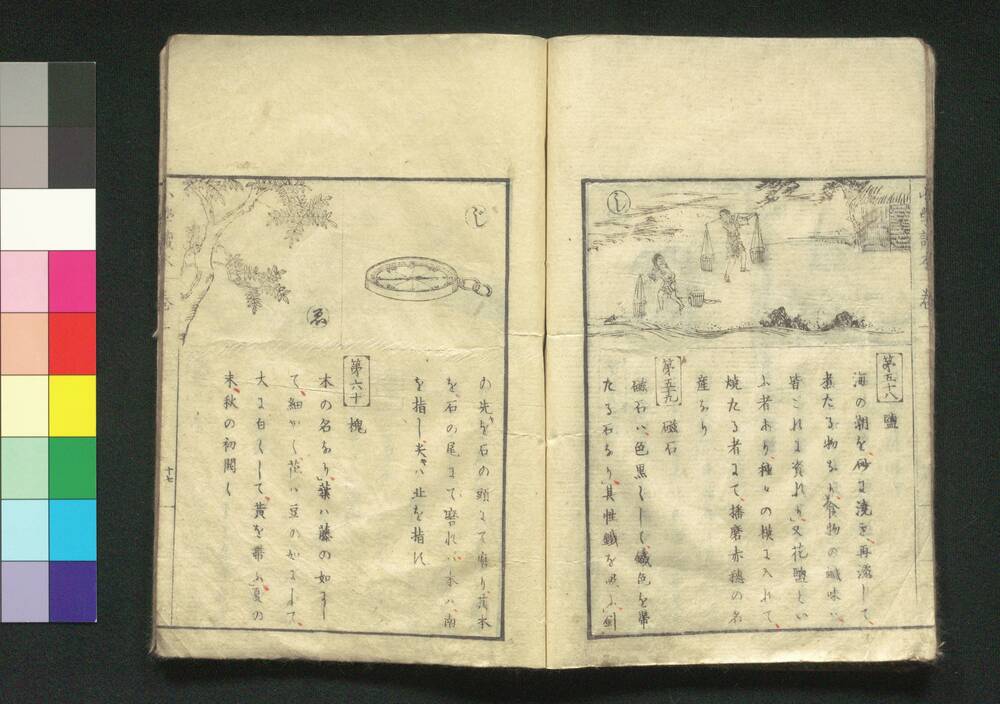 し
第五十八 鹽
海の潮を、砂に澆き、再瀝して、
煮たる物なり、食物の鹹味ハ、
皆これに資れり、又花鹽とい
ふ者あり、種々の模に入れて、
焼たる者にて、播磨赤穂の名
産なり
第五十九 磁石
磁石ハ、色黒くして、鐵色を帯
たる石なり、其性鐵を吸ふ、針
の先を石の頭にて磨り、其本
を、石の尾にて磨れバ、本ハ、南
を指し、尖ハ、北を指す
じ
ゑ
第六十 槐
木の名なり、葉ハ藤の如くし
て、細かく、莢ハ、豆の如くにして、
大に白くして、黄を帯ふ、夏の
末、秋の初開く
十七